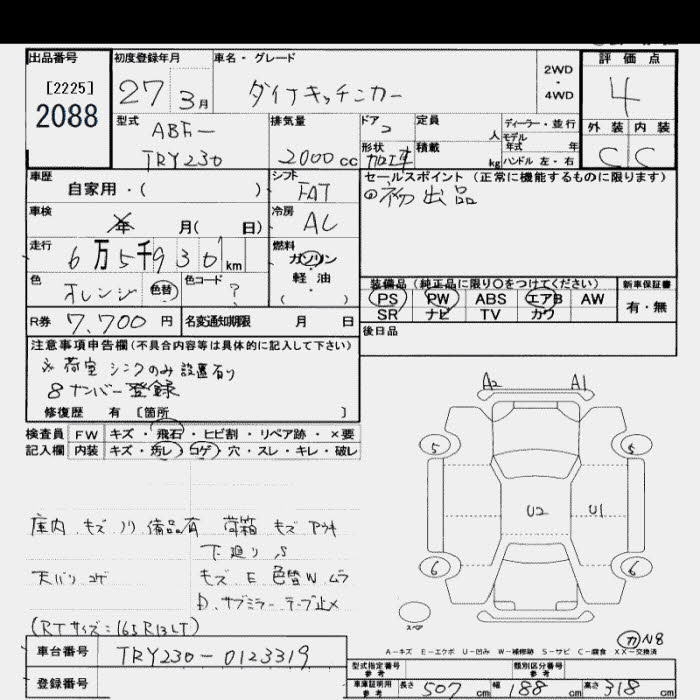 出品番号 初度登録年月 車名・グレード 2WD・4WD 評価点
[2225] 2088 27 3月 ダイナキッチンカー 4
型式 排気量 ドア 定員 人 ディーラー・並行 外装 内装
ABF- 2 モデル年式 年 C C
TRY230 2000cc 形状 加工車 積載 kg ハンドル 左・右
車歴 シフト セールスポイント(正常に機能するものに限ります)
自家用・( ) FAT 初出品
車検 年 月( 日) 冷房 AC
走行 6万5千930km 燃料 ガソリン
軽油
( )
色 オレンジ 色替 色コード ? 装備品(純正品に限り○をつけてください) 新車保証書
PS PW ABS エアB AW 有・無
SR ナビ TV カワ
R券 7,700円 名変通知期限 月 日 後日品
注意事項申告欄(不具合内容等は具体的に記入して下さい)
※荷室 シンクのみ設置有り
8ナンバー登録
修復歴 有 [箇所 ]
A2 A1
検査員 FW キズ・飛石・ヒビ割・リペア跡・×要
記入欄 内装 キズ・汚レ・コゲ・穴・スレ・キレ・破レ
5 5
U2 U1
庫内 キズ ノリ 備品有 荷箱 キズ
下廻り S
天バリ コゲ キズ E 色替W ムラ
6 6
サブミラー テープ止メ
(RTサイズ:165R13LT)
スペア
カN8
A-キズ E-エクボ U-凹み W-補修跡 S-サビ C-腐食 XX-交換済
車台番号 TRY230-0123319
型式指定番号 参考 類別区分番号 参考
登録番号 車庫証明用 参考 長さ 507cm 幅 188cm 高さ 318cm